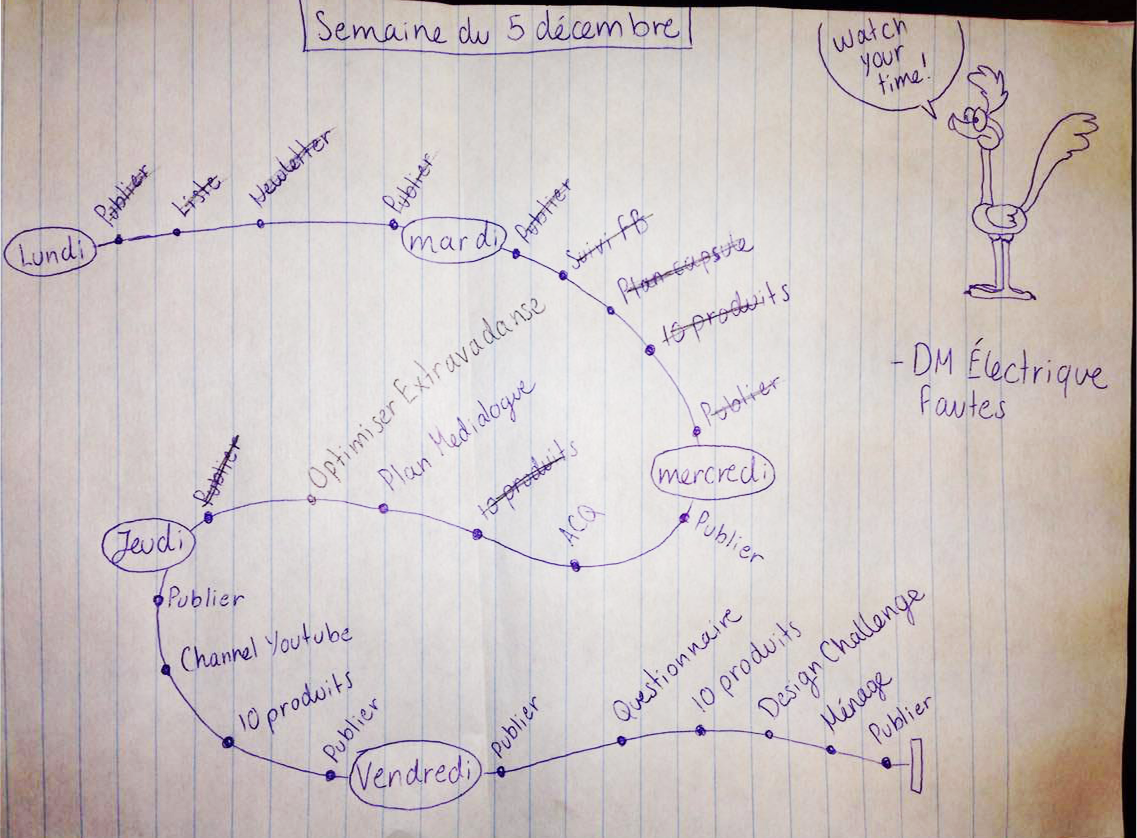 Semaine du 5 décembre
Watch
your
time!
Lundi
Publier
Liste
Newsletter
Publier
mardi
Publier
Suivi FB
Plan capsule
10 produits
Publier
mercredi
Publier
ACQ
10 produits
Plan Medialogue
Optimiser Extravadanse
Publier
Jeudi
Publier
Channel Youtube
10 produits
Publier
Vendredi
Publier
Questionnaire
10 produits
Design Challenge
Ménage
Publier
- DM Électrique
Fautes